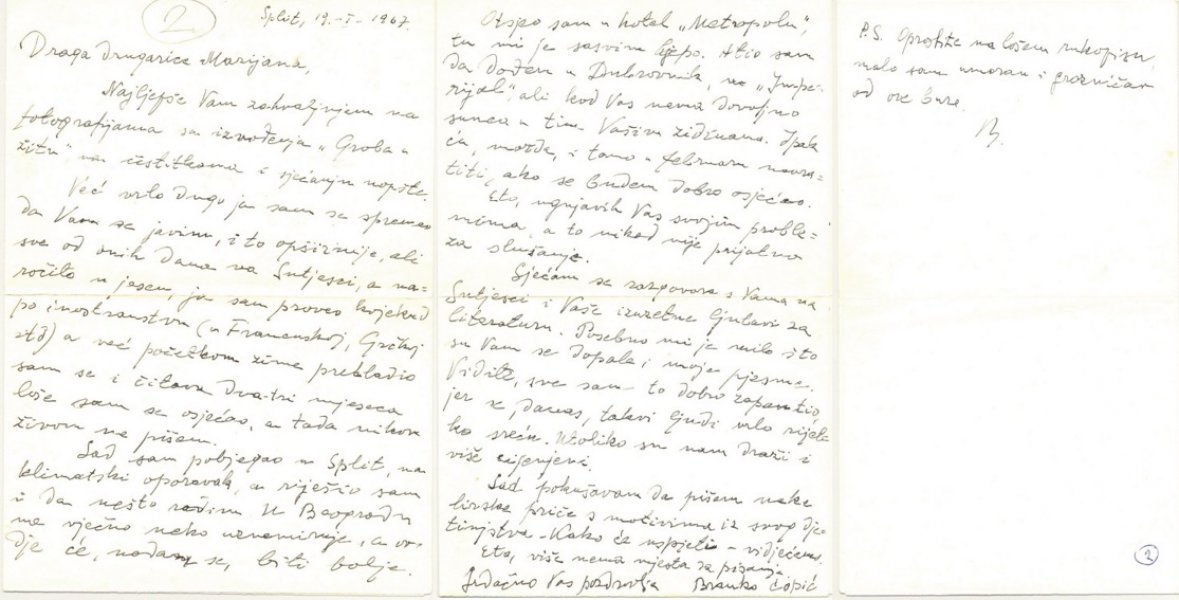 2
Split, 19.-I-1967.
Draga drugarice Marijana,
Najljepše Vam zahvaljujem na
fotografijama sa izvođenja „Groba u
žitu“, na čestitkama i sjećanju uopšte.
Već vrlo dugo ja sam se spremao
da Vam se javim, i to opširnije, ali
sve od onih dana na Sutjesci, a na=
ročito u jesen, ja sam proveo kojekud
po inostranstvu (u Francuskoj, Grčkoj
itd) a već početkom zime prehladio
sam se i čitava dva-tri mjeseca
loše sam se osjećao, a tada nikom
živom ne pišem.
Sad sam pobjegao u Split, na
klimatski oporavak, a riješio sam
i da nešto radim. U Beogradu
me vječno neko uznemiruje, a ov=
dje će, nadam se, biti bolje.
Otsjeo sam u hotel „Metropolu“,
tu mi je sasvim lijepo. Htio sam
da dođem u Dubrovnik, na „Impe-
rijal“, ali kod Vas nema dovoljno
sunca u tim Vašim zidinama. Ipak
ću, možda, i tamo u februaru navra=
titi, ako se budem dobro osjećao.
Eto, ugnjavih Vas svojim proble=
mima, a to nikad nije prijatno
za slušanje.
Sjećam se razgovora s Vama na
Sutjesci i Vaše izuzetne ljubavi za
literaturu. Posebno mi je milo što
su Vam se dopale i moje pjesme.
Vidite, sve sam to dobro zapamtio,
jer se, danas, takvi ljudi vrlo rijet=
ko sreću. Utoliko su nam draži i
više cijenjeni.
Sad pokušavam da pišem neke
lirske priče s motivima iz svog dje
tinjstva. Kako će uspjeti - vidjećemo.
Eto, više nema mjesta za pisanje.
Srdačno Vas pozdravlja Branko Ćopić
P.S. Oprostite na lošem rukopisu,
malo sam umoran i grozničav
od ove bure.
B.
2